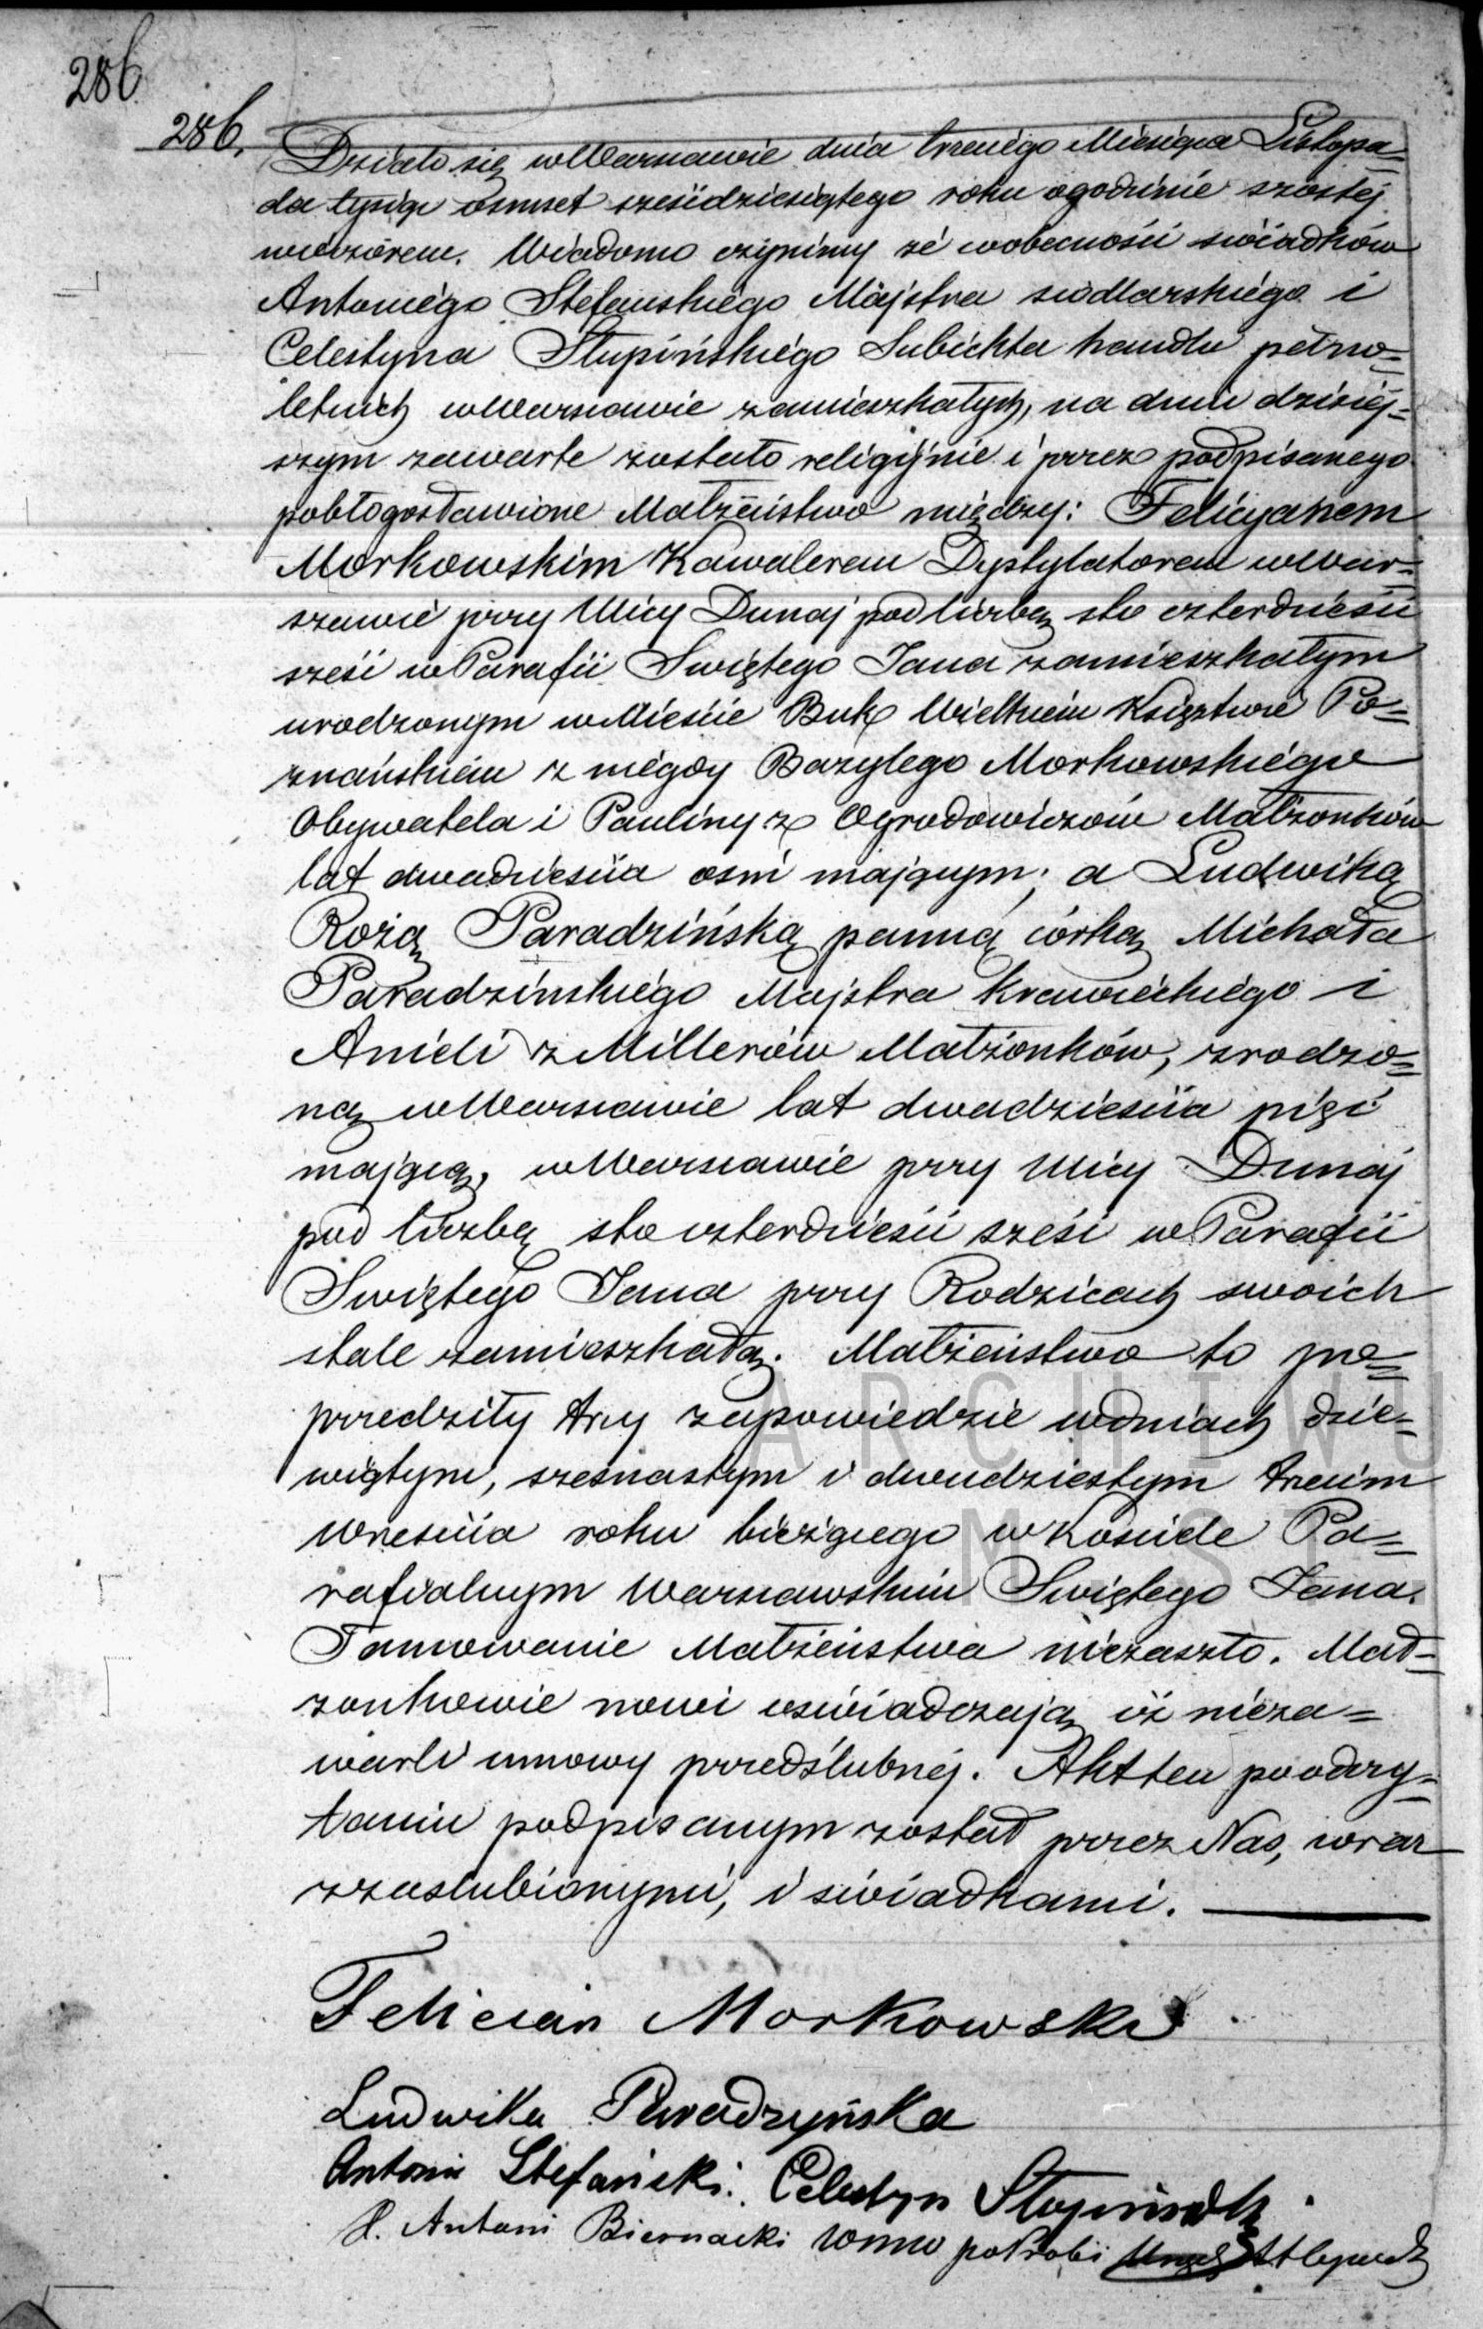 286
286.
Działo się w Warszawie dnia trzeciego Miesiąca Listopa=
da tysiąc ośmset sześćdziesiątego roku o godzinie szóstej
wieczorem. Wiadomo czynimy że w obecności świadków
Antoniego Stefańskiego Majstra siodlarskiego i
Celestyna Stupińskiego Subiekta handlu pełno=
letnich w Warszawie zamieszkałych, na dniu dzisiej=
szym zawarte zostało religijnie i przez podpisanego
pobłogosławione Małżeństwo między: Felicyanem
Morkowskim Kawalerem Dystylatorem w War=
szawie przy Ulicy Dunaj pod liczbą sto czterdzieści
sześć w Parafii Świętego Jana zamieszkałym
urodzonym w Mieście Buk Wielkiem Księztwie Po=
znańskiem z niegdy Bazylego Morkowskiego
Obywatela i Pauliny z Ogrodowiczów Małżonków
lat dwadzieścia ośm mającym; a Ludwiką
Rożą Paradzińską panną córką Michała
Paradzińskiego Majstra krawieckiego i
Anieli z Millerów Małżonków, zrodzo=
ną w Warszawie lat dwadzieścia pięć
mającą, w Warszawie przy Ulicy Dunaj
pod liczbą sto czterdzieści sześć w Parafii
Świętego Jana przy Rodzicach swoich
stale zamieszkałą. Małżeństwo to po=
przedziły trzy zapowiedzie w dniach dzie=
wiątym, szesnastym i dwudziestym trzecim
Września roku bieżącego w Kościele Pa=
rafialnym Warszawskim Świętego Jana.
Tamowanie Małżeństwa niezaszło. Mał=
żonkowie nowi oświadczają iż nieza=
warli umowy przedślubnej. Akt ten po odczy=
taniu podpisanym został przez Nas, wraz
z zaślubionymi, i świadkami.
Felician Morkowski
Ludwika Paradzyńska
Antoni Stefański. Celestyn Stupiński.
X. Antoni Biernacki
ARCHIWU
M. ST.